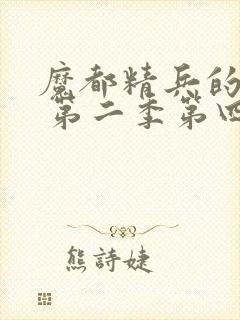 魔都精兵的
第二季第四
熊詩婕